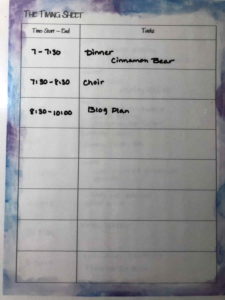 The Timing Sheet
Time Start - End Tasks
7 - 7:30 Dinner
Cinnamon Bear
7:30 - 8:30 Choir
8:30 - 10:00 Blog Plan